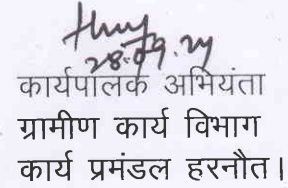 28.09.24
कार्यपालक अभियंता
ग्रामीण कार्य विभाग
कार्य प्रमंडल हरनौत।